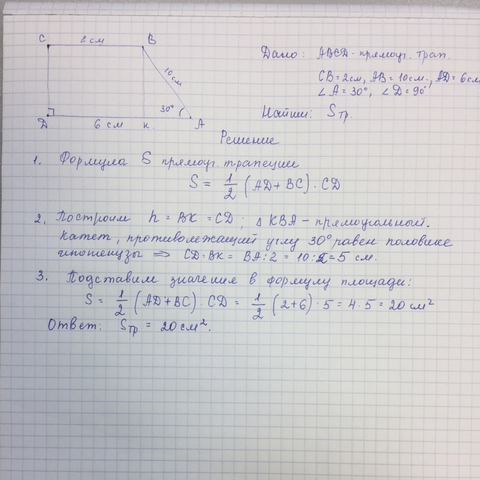 C 2 см B
10 см
30°
D 6 см К A
Дано: ABCD - прямоуг. трап.
CB = 2см, AB = 10см, AD = 6см
∠A = 30°, ∠D = 90°
Найти: Sтр.
Решение
1. Формула S прямоуг. трапеции
S = 1/2 (AD + BC) · CD
2. Построим h = BK = CD; Δ KBA - прямоугольный.
Катет, противолежащий углу 30° равен половине
гипотенузы ⇒ CD = BK = BA : 2 = 10 : 2 = 5 см.
3. Подставим значения в формулу площади:
S = 1/2 (AD + BC) · CD = 1/2 (2 + 6) · 5 = 4 · 5 = 20 см²
Ответ: Sтр = 20 см².